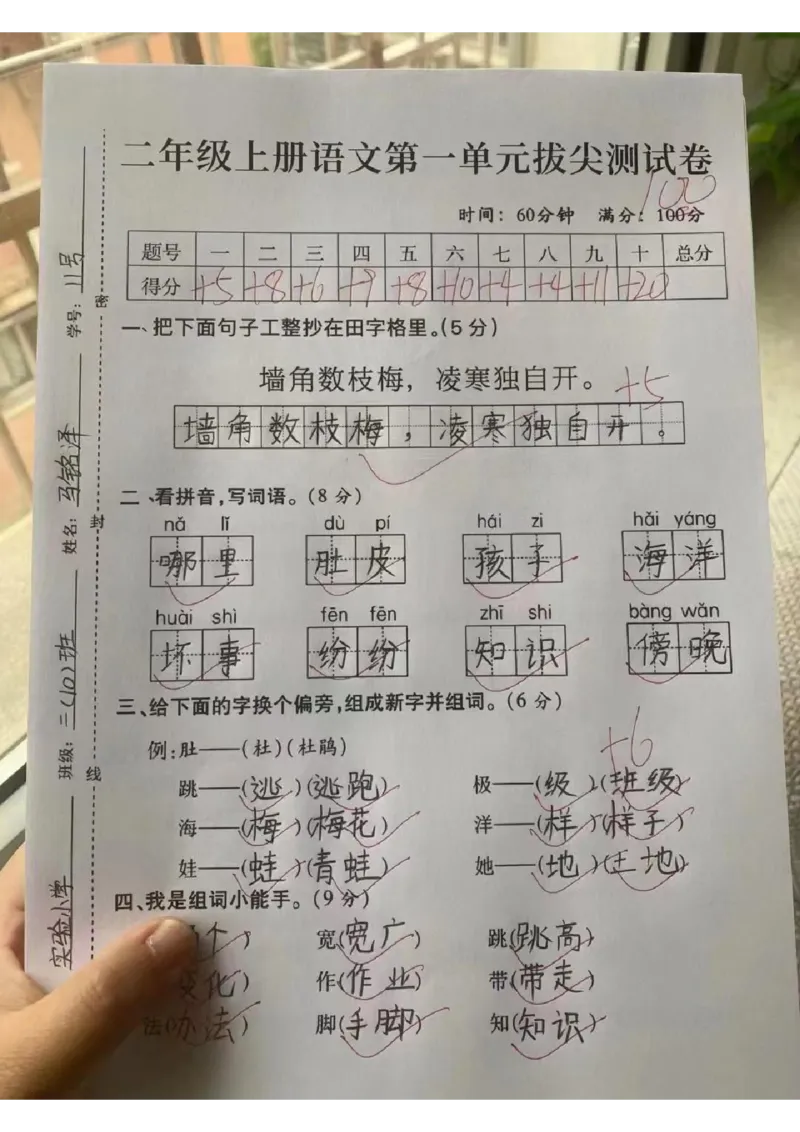 二年级上册语文第一单元拔尖测试卷
100
时间：60分钟 满分：100分
题号 一 二 三 四 五 六 七 八 九 十 总分
得分 +5 +8 +6 +9 +8 +10 +4 +4 +11 +20
一、把下面句子工整抄在田字格里。(5分)
墙角数枝梅，凌寒独自开。 +5
墙角数枝梅，凌寒独自开。
二、看拼音，写词语。(8分)
nǎ lǐ dù pí hái zi hǎi yáng
哪里 肚皮 孩子 海洋
huài shì fēn fēn zhī shi bàng wǎn
坏事 纷纷 知识 傍晚
三、给下面的字换个偏旁，组成新字并组词。(6分)
+6
例：肚——(杜)(杜鹃)
跳——(逃)(逃跑) 极——(级)(班级)
海——(梅)(梅花) 洋——(样)(样子)
娃——(蛙)(青蛙) 她——(地)(土地)
四、我是组词小能手。(9分)
个) 宽(宽广) 跳(跳高)
变化) 作(作业) 带(带走)
法(办法) 脚(手脚) 知(知识)
实验小学 班级：二(10)班 姓名：马铭泽 学号：11号
密 封 线